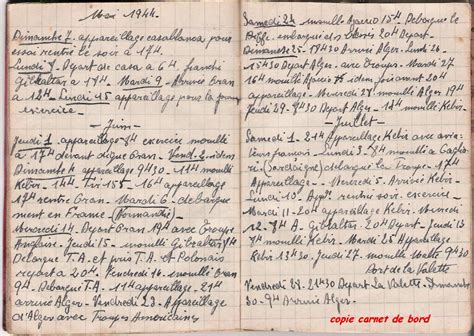 Mai 1944.
Dimanche 7. appareillage Casablanca pour
essai rentré le soir à 17H.
Lundi 8. Départ de Casa à 6H, franchi
Gibraltar à 17H. Mardi 9. Arrivée Oran
à 12H. Lundi 15 appareillage pour la
exercice.
— Juin —
Jeudi 1. appareillage 8H exercice mouillé
à 17H devant digue Oran. Vend. 2. idem
Dimanche 4 appareillage 9H30 - 11H mouillé
Kébir. 14H 15H - 16H appareillage
17H rentré Oran. Mardi 6. débarque
ment en France (Normandie)
Mercredi 14. Départ Oran 19H avec Troupe
française. Jeudi 15. mouillé Gibraltar 9H
Débarque T.A. et pris T.A. et Polonais
repart à 20H. Vendredi 16. mouillé Oran
9H. Départ 16H Appareillage. 21H
arrivée Alger. Vendredi 23. Appareillage
d'Alger avec Troupes Américaines
Samedi 24 mouillé Ajaccio 15H. Débarque la
Troupe. embarque des blessés 20H Départ
Dimanche 25. 19H30 Arrivée Alger. Lundi 26.
15H30 Départ Alger. avec Troupes. Mardi 27
16H mouillé Ajaccio idem faisant 20H
appareillage. Mercredi 28. mouillé Alger 19H
Jeudi 29. 9H30 Départ Alger. 18H mouillé Kébir.
— Juillet —
Samedi 1. 21H Appareillage Kébir avec avia-
teurs français. Lundi 3. 8H mouillé à Caglia-
ri. (Sardaigne) débarqué la Troupe. 17H
Appareillage. Mercredi 5. Arrivée Kébir.
Lundi 10. rentré soir. exercice.
Mardi 11. 20H appareillage Kébir. Mercredi
12. 8H A. Gibraltar 20H Départ. Jeudi 13
7H mouillé Kébir. Mardi 25 Appareillage
Kébir 13H30. Jeudi 27. mouillé Malte 9H30
Port de la Valette
Vendredi 28. 21H30 Départ La Valette. Dimanche
30. 9H Arrivée Alger.
copie carnet de bord